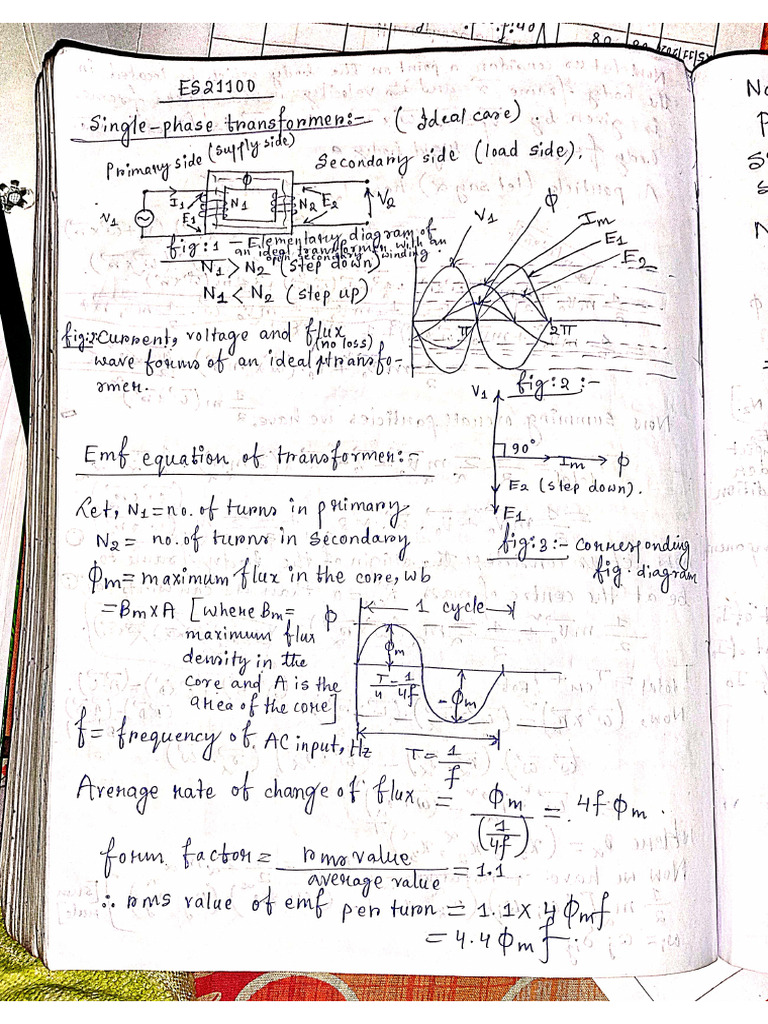 ES21100
Single-phase transformer:- (Ideal case).
Primary side (supply side)
Secondary side (load side).
I1
V1
E1
N1
ϕ
N2
E2
V2
fig:1 - Elementary diagram of
an ideal transformer with an
open secondary winding.
N1 > N2 (step down)
N1 < N2 (step up)
V1
ϕ
Im
E1
E2
π
2π
fig:2 :-
fig:2:Current, voltage and flux
(no loss)
wave forms of an ideal transfo-
rmer.
V1
90°
Im
ϕ
E2 (step down).
E1
fig:3:- corresponding
fig. diagram
Emf equation of transformer:-
Let, N1 = no. of turns in primary
N2 = no. of turns in secondary
ϕm = maximum flux in the core, wb
= Bm x A [where Bm =
maximum flux
density in the
core and A is the
area of the core]
ϕ
1 cycle
ϕm
T/4 = 1/4f
-ϕm
T = 1/f
f = frequency of AC input, Hz
Average rate of change of flux = ϕm/(1/4f) = 4fϕm.
form factor = rms value/average value = 1.1
∴ rms value of emf per turn = 1.1 x 4ϕmf
= 4.4ϕmf.